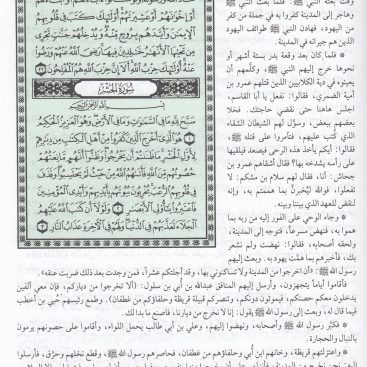 وقت بعثه النبي ﷺ. فلما بعث النبي ﷺ
وهاجر إلى المدينة كفروا به في جملة من كفر
من اليهود، فهادن النبي ﷺ طوائف اليهود
الذين هم جيرانه في المدينة.
* فلما كان بعد وقعة بدر بستة أشهر أو
نحوها خرج إليهم النبي ﷺ، وكلمهم أن
يعينوه في دية الكلابيين الذين قتلهم عمرو بن
أمية الضمري، فقالوا: نفعل يا أبا القاسم،
اجلس هاهنا حتى نقضي حاجتك. فخلا
بعضهم ببعض، وسوَّل لهم الشيطان الشقاء
الذي كتب عليهم، فتآمروا على قتله ﷺ،
فقالوا: أيكم يأخذ هذه الرحى فيصعد فيلقيها
على رأسه يشدخه بها؟ فقال أشقاهم عمرو بن
جحاش: أنا، فقال لهم سلام بن مشكم: لا
تفعلوا، فوالله ليُخبرنَّ بما هممتم به، وإنه
لنقض للعهد الذي بيننا وبينه.
* وجاء الوحي على الفور إليه من ربه بما
هموا به، فنهض مسرعاً، فتوجه إلى المدينة،
ولحقه أصحابه، فقالوا: نهضت ولم نشعر
بك، فأخبرهم بما همَّت يهود به. وبعث إليهم
رسول الله ﷺ: «أن اخرجوا من المدينة ولا تساكنوني بها، وقد أجلتكم عشراً، فمن وجدت بعد ذلك ضربت عنقه».
فأقاموا أياماً يتجهزون، وأرسل إليهم المنافق عبدالله بن أبي بن سلول: (ألا تخرجوا من دياركم، فإن معي ألفين
يدخلون معكم حصنكم، فيموتون دونكم، وتنصركم قريظة وحلفاؤكم من غطفان). وطمع رئيسهم حيي بن أخطب
فيما قال له، وبعث إلى رسول الله ﷺ يقول: إنا لا نخرج من ديارنا، فاصنع ما بدا لك.
* فكبَّر رسول الله ﷺ وأصحابه، ونهضوا إليهم، وعلي بن أبي طالب يحمل اللواء، وأقاموا على حصونهم يرمون
بالنبال والحجارة.
* واعتزلتهم قريظة، وخانهم ابن أبي وحلفاؤهم من غطفان، فحاصرهم رسول الله ﷺ، وقطع نخلهم وحرَّق، فأرسلوا
أَوْ إِخْوَانَهُمْ أَوْ عَشِيرَتَهُمْ أُولَٰئِكَ كَتَبَ فِي قُلُوبِهِمُ
الْإِيمَانَ وَأَيَّدَهُم بِرُوحٍ مِّنْهُ وَيُدْخِلُهُمْ جَنَّاتٍ تَجْرِي
مِن تَحْتِهَا الْأَنْهَارُ خَالِدِينَ فِيهَا رَضِيَ اللَّهُ عَنْهُمْ وَرَضُوا
عَنْهُ أُولَٰئِكَ حِزْبُ اللَّهِ أَلَا إِنَّ حِزْبَ اللَّهِ هُمُ الْمُفْلِحُونَ ٢٢
سُورَةُ الْحَشْرِ
بِسْمِ اللَّهِ الرَّحْمَٰنِ الرَّحِيمِ
سَبَّحَ لِلَّهِ مَا فِي السَّمَاوَاتِ وَمَا فِي الْأَرْضِ وَهُوَ الْعَزِيزُ الْحَكِيمُ
١ هُوَ الَّذِي أَخْرَجَ الَّذِينَ كَفَرُوا مِنْ أَهْلِ الْكِتَابِ مِن دِيَارِهِمْ
لِأَوَّلِ الْحَشْرِ مَا ظَنَنتُمْ أَن يَخْرُجُوا وَظَنُّوا أَنَّهُم مَّانِعَتُهُمْ
حُصُونُهُم مِّنَ اللَّهِ فَأَتَاهُمُ اللَّهُ مِنْ حَيْثُ لَمْ يَحْتَسِبُوا وَقَذَفَ
فِي قُلُوبِهِمُ الرُّعْبَ يُخْرِبُونَ بُيُوتَهُم بِأَيْدِيهِمْ وَأَيْدِي الْمُؤْمِنِينَ
فَاعْتَبِرُوا يَا أُولِي الْأَبْصَارِ ٢ وَلَوْلَا أَن كَتَبَ اللَّهُ عَلَيْهِمُ
الْجَلَاءَ لَعَذَّبَهُمْ فِي الدُّنْيَا وَلَهُمْ فِي الْآخِرَةِ عَذَابُ النَّارِ ٣